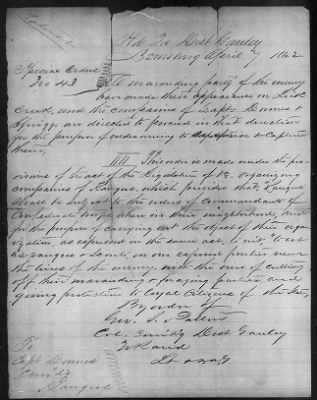 Hd Qrs Dist Gauley
April 7 1862
Special Orders
No 43
A marauding party of the enemy
have made their appearance on
Creek, and the companies of Capts. Downs &
Spriggs are directed to proceed in that direction
for the purpose of endeavoring to disperse or capture
them.
IIII This order is made under the pro-
visions of the act of the Legislature of Va. organizing
companies of Rangers, which provides that, Rangers
shall be subject to the orders of Commandants of
Confederate troops when in their neighborhood, and
for the purpose of carrying out the object of their organ-
ization, as expressed in the same act, to wit, "to act
as rangers & scouts, on our exposed frontier near
the lines of the enemy, with the view of cutting
off their marauding & foraging parties, and
giving protection to loyal citizens of the State,
By order of
Geo. S. Patton
Col. Comd'g Dist Gauley
To
Capt Downs
Comd'g
Rangers